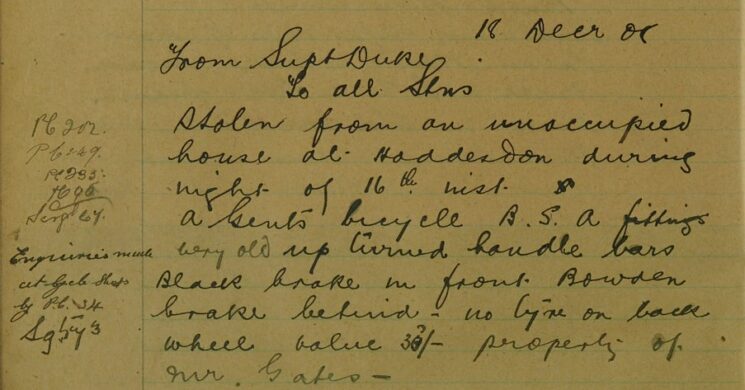 18 Decr 01
From Supt Duke
To all Stns
Stolen from an unoccupied
house at Hoddesdon during
night of 16th inst
A Gents bicycle B.S.A fittings
very old up turned handle bars
Black brake in front Bowden
brake behind - no tyre on back
wheel value 30/- property of
Mr. Gates -
PC 202.
PC 249.
PC 235
PC 90
Sergt 67.
Enquiries made
at Cycle Shops
by P.C. 34